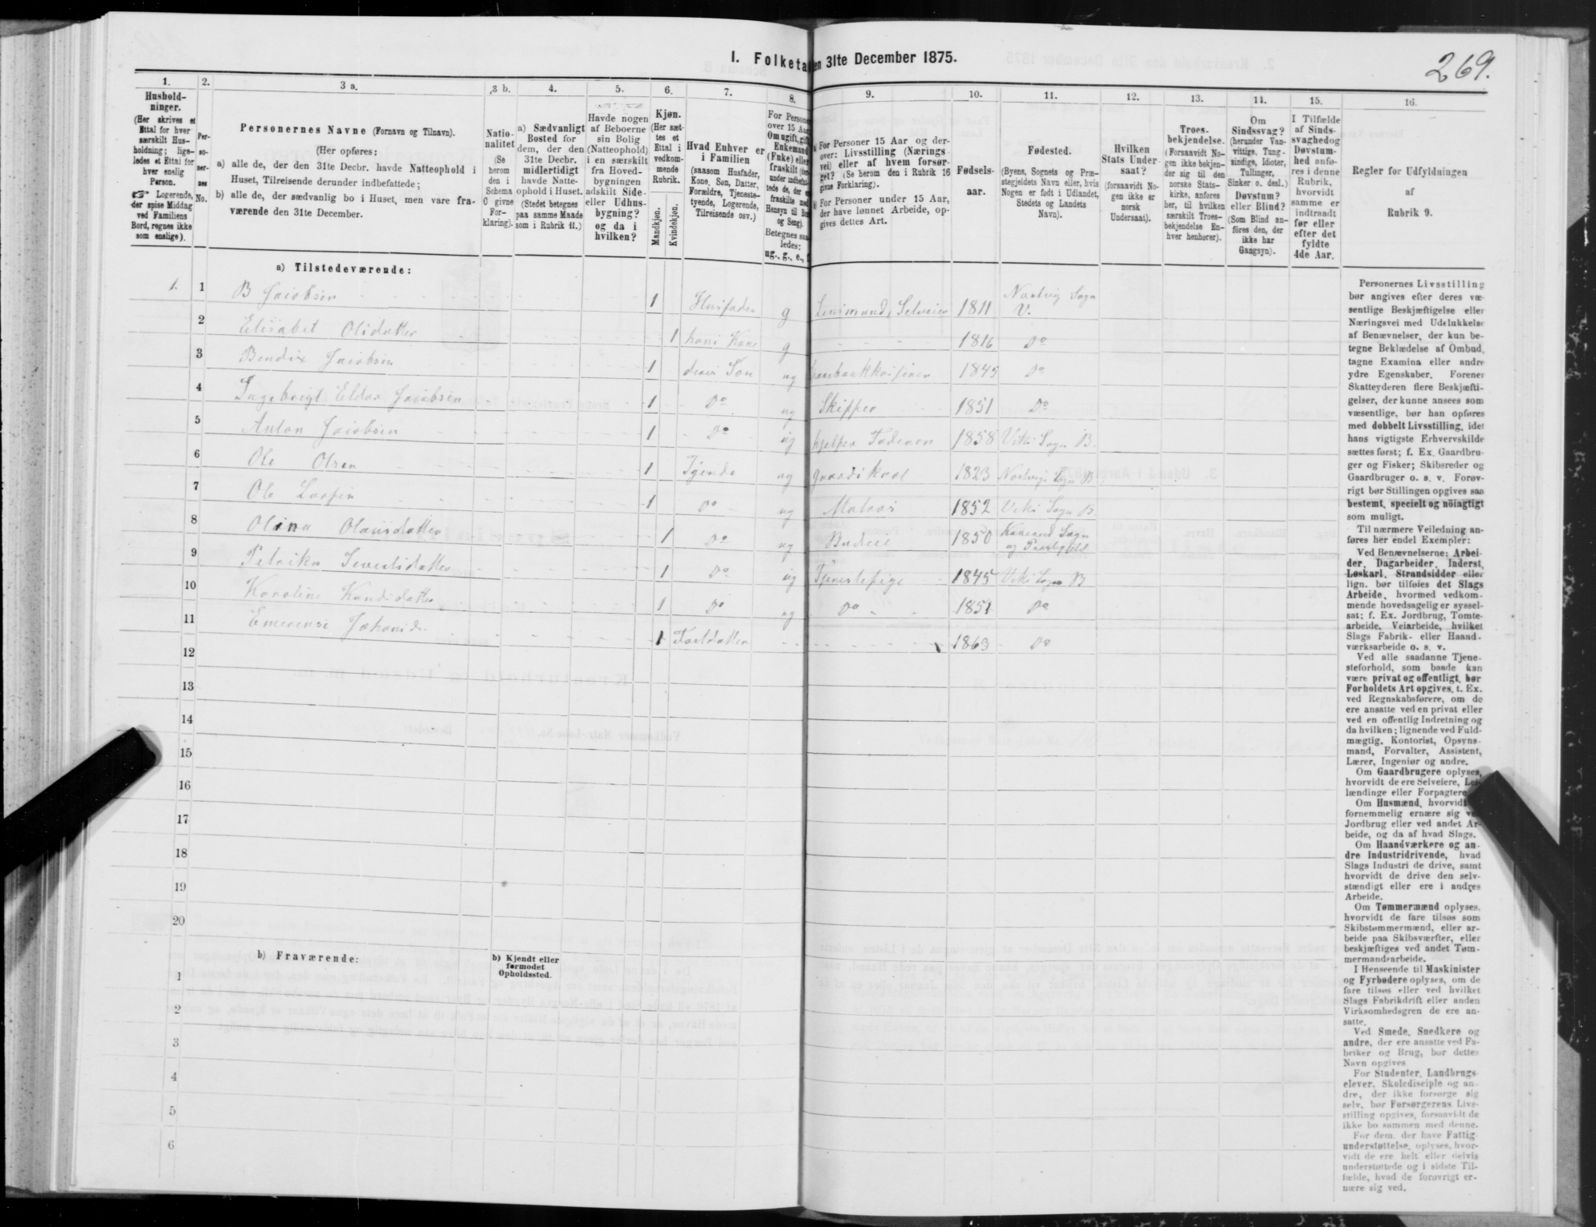 269.
I. Folketa en 31te December 1875.
1.
Hushold-
ninger.
(Her skrives et
Ettal for hver
særskilt Hus-
holdning; lige-
ledes et Ettal for
hver enslig
Person.
Logerende,
der spise Middag
ved Familiens
Bord, regnes ikke
som enslige).
2.
Per-
so-
ner-
nes
No.
3 a.
Personernes Navne (Fornavn og Tilnavn).
(Her opføres:
a) alle de, der den 31te Decbr. havde Natteophold i
Huset, Tilreisende derunder indbefattede;
b) alle de, der sædvanlig bo i Huset, men vare fra-
værende den 31te December.
3 b.
Natio-
nalitet
(Se
herom
den i
Schema
C givne
For-
klaring).
4.
a) Sædvanligt
Bosted for
dem, der den
31te Decbr.
midlertidigt
havde Natte-
ophold i Huset.
(Stedet betegnes
paa samme Maade
som i Rubrik 11.)
5.
Havde nogen
af Beboerne
sin Bolig
(Natteophold)
i en særskilt
fra Hoved-
bygningen
adskilt Side-
eller Udhus-
bygning?
og da i
hvilken?
6.
Kjøn.
(Her sæt-
tes et
Ettal i
vedkom-
mende
Rubrik.
Mandkjøn.
Kvindekjøn.
7.
Hvad Enhver er
i Familien
(saasom Husfader,
Kone, Søn, Datter,
Forældre, Tjeneste-
tyende, Logerende,
Tilreisende osv.)
8.
For Persone
over 15 Aar
Om ugift, gift
Enkemand
(Enke) eller
fraskilt
Betegnes saa
ledes:
ug., g., e.,
9.
For Personer 15 Aar og der-
over: Livsstilling (Nærings-
vei) eller af hvem forsør-
get? (Se herom den i Rubrik 16
givne Forklaring).
For Personer under 15 Aar,
der have lønnet Arbeide, op-
gives dettes Art.
10.
Fødsels-
aar.
11.
Fødested.
(Byens, Sognets og Præ-
stegjeldets Navn eller, hvis
Nogen er født i Udlandet,
Stedets og Landets
Navn).
12.
Hvilken
Stats Under-
saat?
(forsaavidt No-
gen ikke er
norsk
Undersaat).
13.
Troes-
bekjendelse.
(Forsaavidt No-
gen ikke bekjen-
der sig til den
norske Stats-
kirke, anføres
her, til hvilken
særskilt Troes-
bekjendelse En-
hver henhører).
14.
Om
Sindssvag?
(herunder Van-
vittige, Tung-
sindige, Idioter,
Tullinger,
Sinker o. desl.)
Døvstum?
eller Blind?
(Som Blind an-
føres den, der
ikke har
Gangsyn).
15.
I Tilfælde
af Sinds-
svaghed og
Døvstum-
hed anfø-
res i denne
Rubrik,
hvorvidt
samme er
indtraadt
før eller
efter det
fyldte
4de Aar.
16.
Regler for Udfyldningen
af
Rubrik 9.
a) Tilstedeværende:
1. 1 B Jacobsen 1 Husfader g Selveier 1811 Nærtvig Sogn
V.
2 Elisabet Olsdatter 1 hans Kone g 1816 Do
3 Bendix Jacobsen 1 deres Søn ug 1845 Do
4 Ingebrigt Eldar Jacobsen 1 Do ug Skipper 1851 Do
5 Anton Jacobsen 1 Do ug hjelper Faderen 1858 Vik Sogn B.
6 Ole Olsen 1 Tjener ug 1823 Sogn B
7 Ole 1 Do ug Matros 1852 Vik Sogn B
8 Olina Olausdatter 1 Do ug Budeie 1850 Sogn
og
9 Petrikke 1 Do ug Tjenestepige 1845 Vik Sogn B
10 Karoline 1 Do ug Do 1851 Do
11 1 Fosterdatter 1863 Do
12
13
14
15
16
17
18
19
20
b) Fraværende:
b) Kjendt eller
formodet
Opholdssted.
1
2
3
4
5
6
Personernes Livsstilling
bør angives efter deres væ-
sentlige Beskjæftigelse eller
Næringsvei med Udelukkelse
af Benævnelser, der kun be-
tegne Beklædelse af Ombud,
tagne Examina eller andre
ydre Egenskaber. Forener
Skatteyderen flere Beskjæfti-
gelser, der kunne ansees som
væsentlige, bør han opføres
med dobbelt Livsstilling, idet
hans vigtigste Erhvervskilde
sættes først; f. Ex. Gaardbru-
ger og Fisker; Skibsreder og
Gaardbruger o. s. v. Forøv-
rigt bør Stillingen opgives saa
bestemt, specielt og nøiagtigt
som muligt.
Til nærmere Veiledning an-
føres her endel Exempler:
Ved Benævnelserne: Arbei-
der, Dagarbeider, Inderst,
Løskarl, Strandsidder eller
lign. bør tilføies det Slags
Arbeide, hvormed vedkom-
mende hovedsagelig er syssel-
sat; f. Ex. Jordbrug, Tomte-
arbeide, Veiarbeide, hvilket
Slags Fabrik- eller Haand-
værksarbeide o. s. v.
Ved alle saadanne Tjene-
steforhold, som baade kan
være privat og offentligt, bør
Forholdets Art opgives, t. Ex.
ved Regnskabsførere, om de
ere ansatte ved en privat eller
ved en offentlig Indretning og
da hvilken; lignende ved Fuld-
mægtig, Kontorist, Opsyns-
mand, Forvalter, Assistent,
Lærer, Ingeniør og andre.
Om Gaardbrugere oplyses,
hvorvidt de ere Selveiere, Lei-
lændinge eller Forpagtere.
Om Husmænd, hvorvidt
fornemmelig ernære sig ved
Jordbrug eller ved andet Ar-
beide, og da af hvad Slags.
Om Haandværkere og an-
dre Industridrivende, hvad
Slags Industri de drive, samt
hvorvidt de drive den selv-
stændigt eller ere i andres
Arbeide.
Om Tømmermænd oplyses,
hvorvidt de fare tilsøs som
Skibstømmermænd, eller ar-
beide paa Skibsværfter, eller
beskjæftiges ved andet Tøm-
mermandsarbeide.
I Henseende til Maskinister
og Fyrbødere oplyses, om de
fare tilsøs eller ved hvilket
Slags Fabrikdrift eller anden
Virksomhedsgren de ere an-
satte.
Ved Smede, Snedkere og
andre, der ere ansatte ved Fa-
briker og Brug, bør dettes
Navn opgives
For Studenter, Landbrugs-
elever, Skoledisciple og an-
dre, der ikke forsørge sig
selv, bør Forsørgerens Livs-
stilling opgives, forsaavidt de
ikke bo sammen med denne.
For dem, der have Fattig-
understøttelse, oplyses, hvor-
vidt de ere helt eller delvis
understøttede og i sidste Til-
fælde, hvad de forøvrigt er-
nære sig ved.